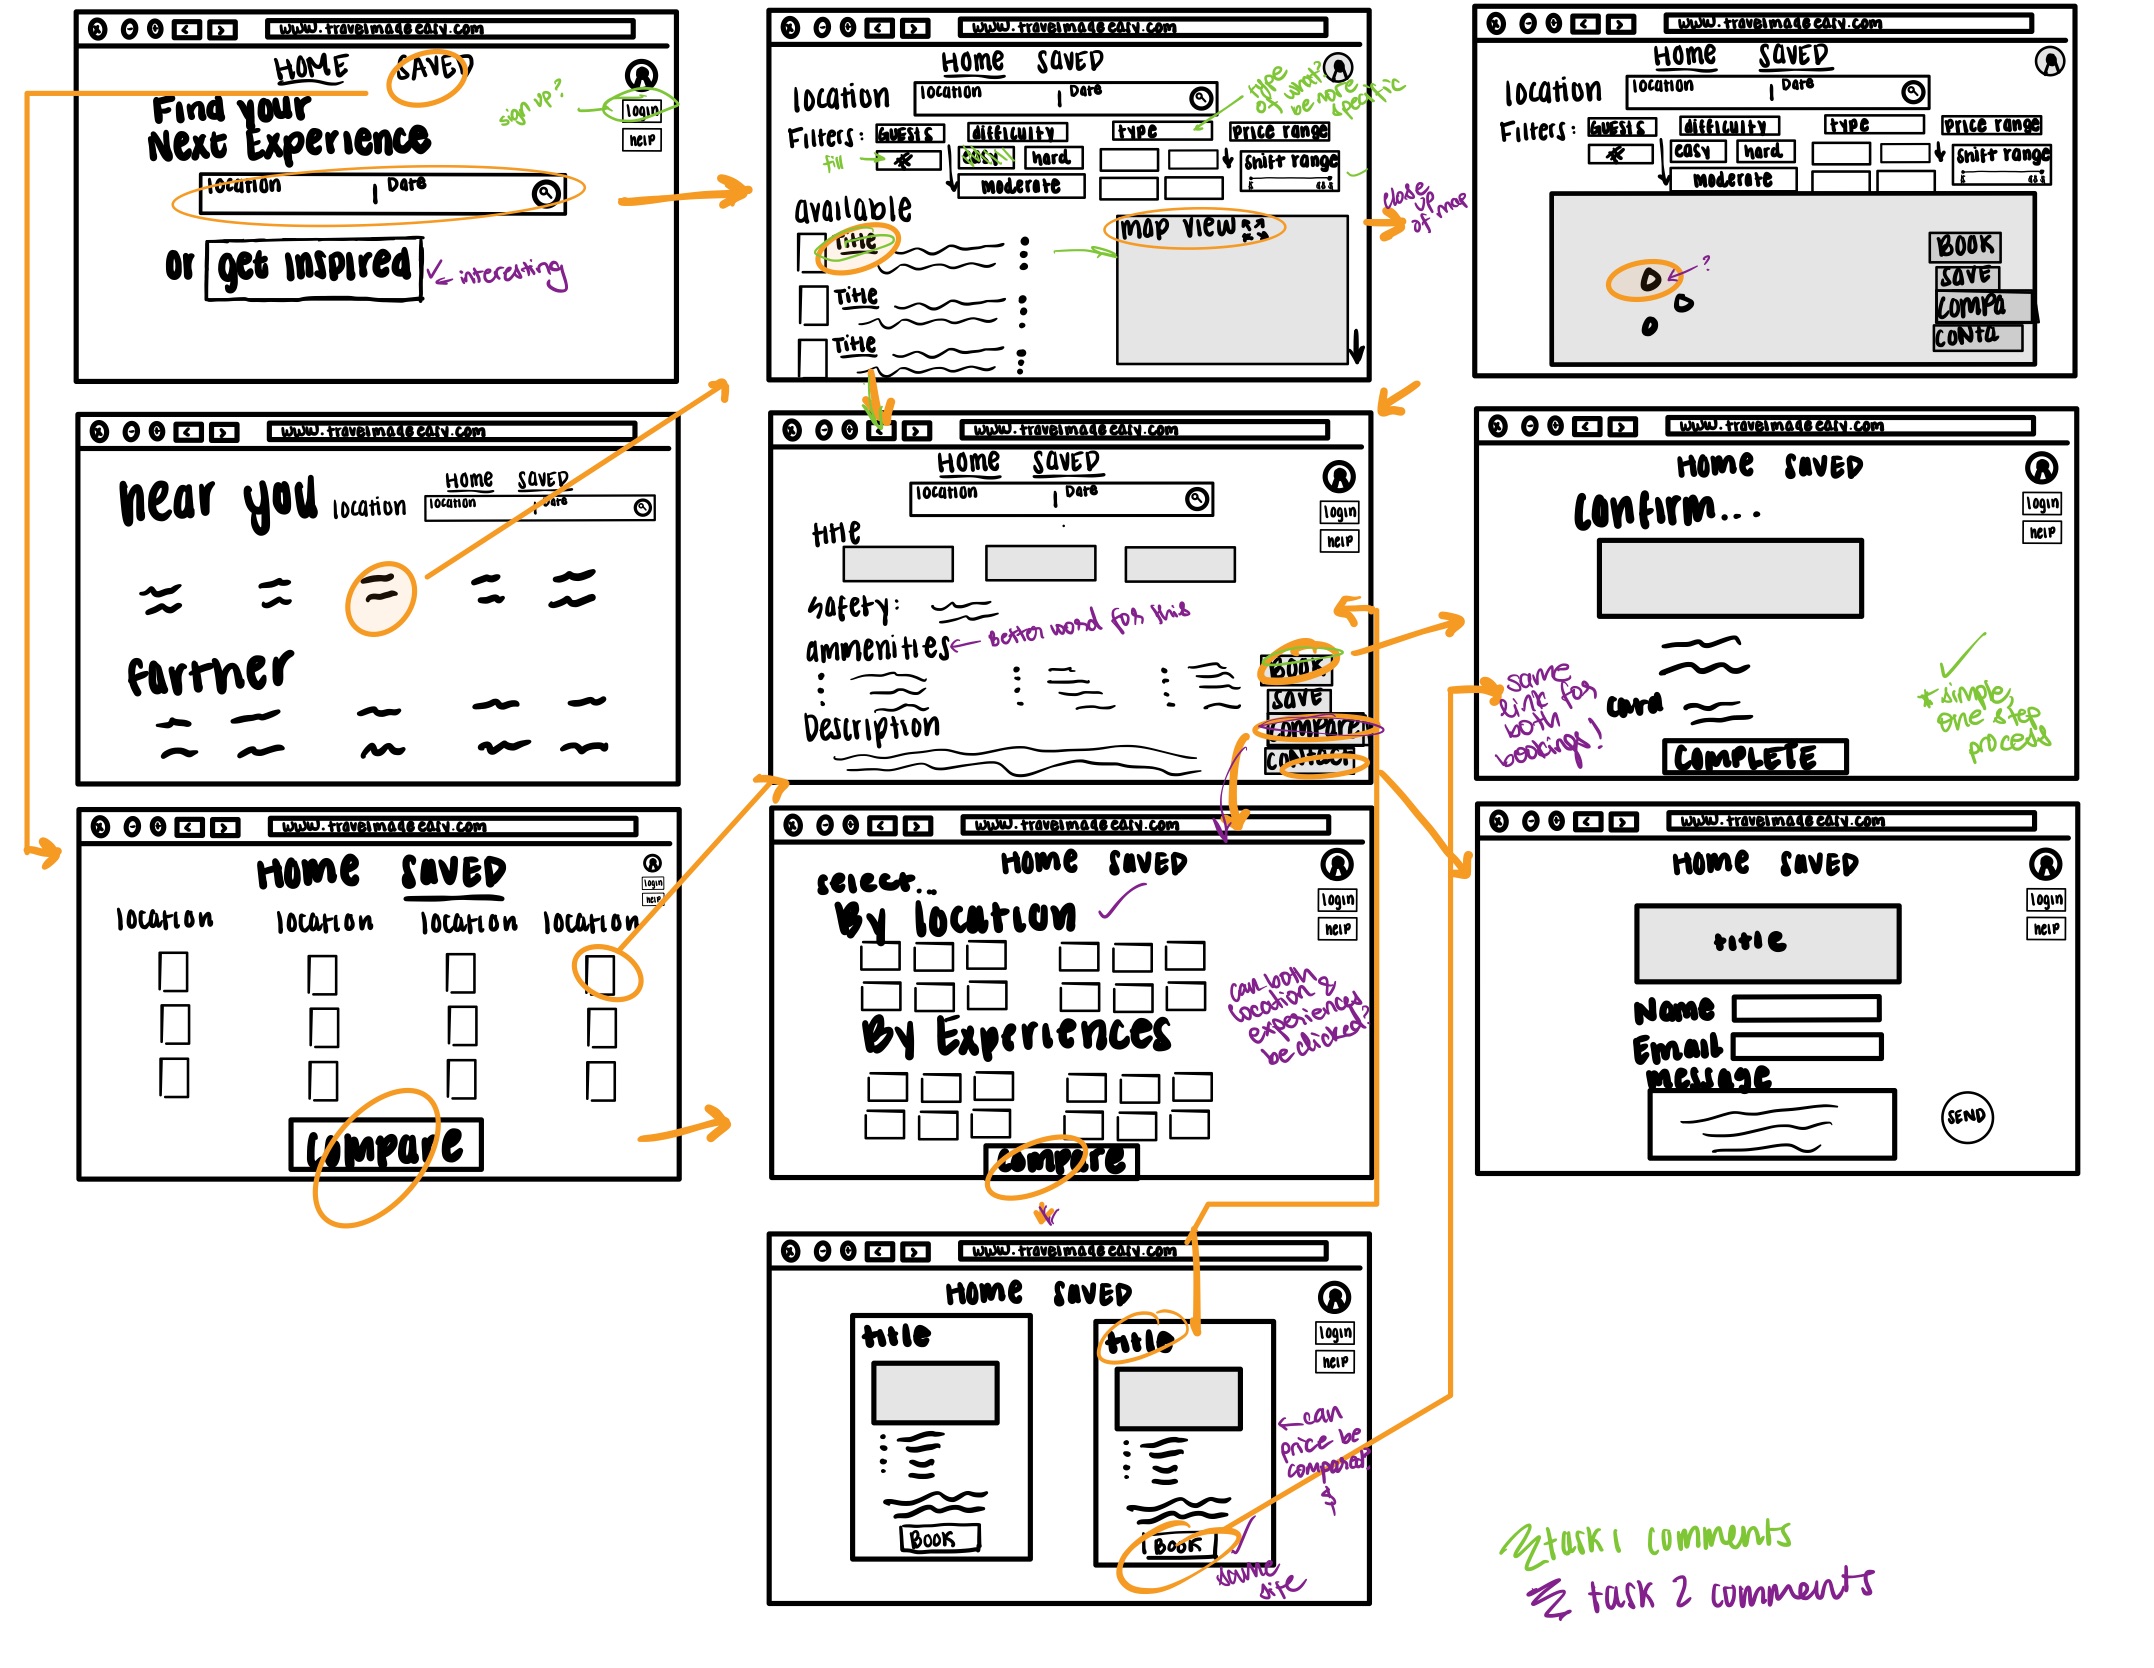 www.travelmadeeasy.com
HOME SAVED
Find your
Next Experience
sign up?
login
help
location | Date
or get inspired
interesting
www.travelmadeeasy.com
Home SAVED
location
location | Date
type
of what?
be more
specific
Filters: GUESTS difficulty type Price range
fill
hard
moderate
shift range
available
Title
Title
Title
map view
close
up
of map
www.travelmadeeasy.com
Home SAVED
location
location | Date
Filters: GUESTS difficulty type Price range
easy hard
moderate
shift range
?
BOOK
SAVE
COMPA
CONTA
www.travelmadeeasy.com
near you
location
Home SAVED
location | Date
farther
www.travelmadeeasy.com
Home SAVED
location | Date
login
help
title
safety:
ammenities
Better word for this
Description
BOOK
SAVE
COMPARE
CONTACT
www.travelmadeeasy.com
Home SAVED
login
help
confirm...
same
link for
both
bookings!
card
COMPLETE
* simple,
one step
process
www.travelmadeeasy.com
Home SAVED
login
help
location location location location
Compare
www.travelmadeeasy.com
Home SAVED
login
help
select...
By location
can both
location &
experiences
be clicked?
By Experiences
compare
www.travelmadeeasy.com
Home SAVED
login
help
title
Name
Email
message
SEND
www.travelmadeeasy.com
Home SAVED
login
help
title
title
can
price be
compared
$
BOOK
BOOK
same
site
task 1 comments
task 2 comments